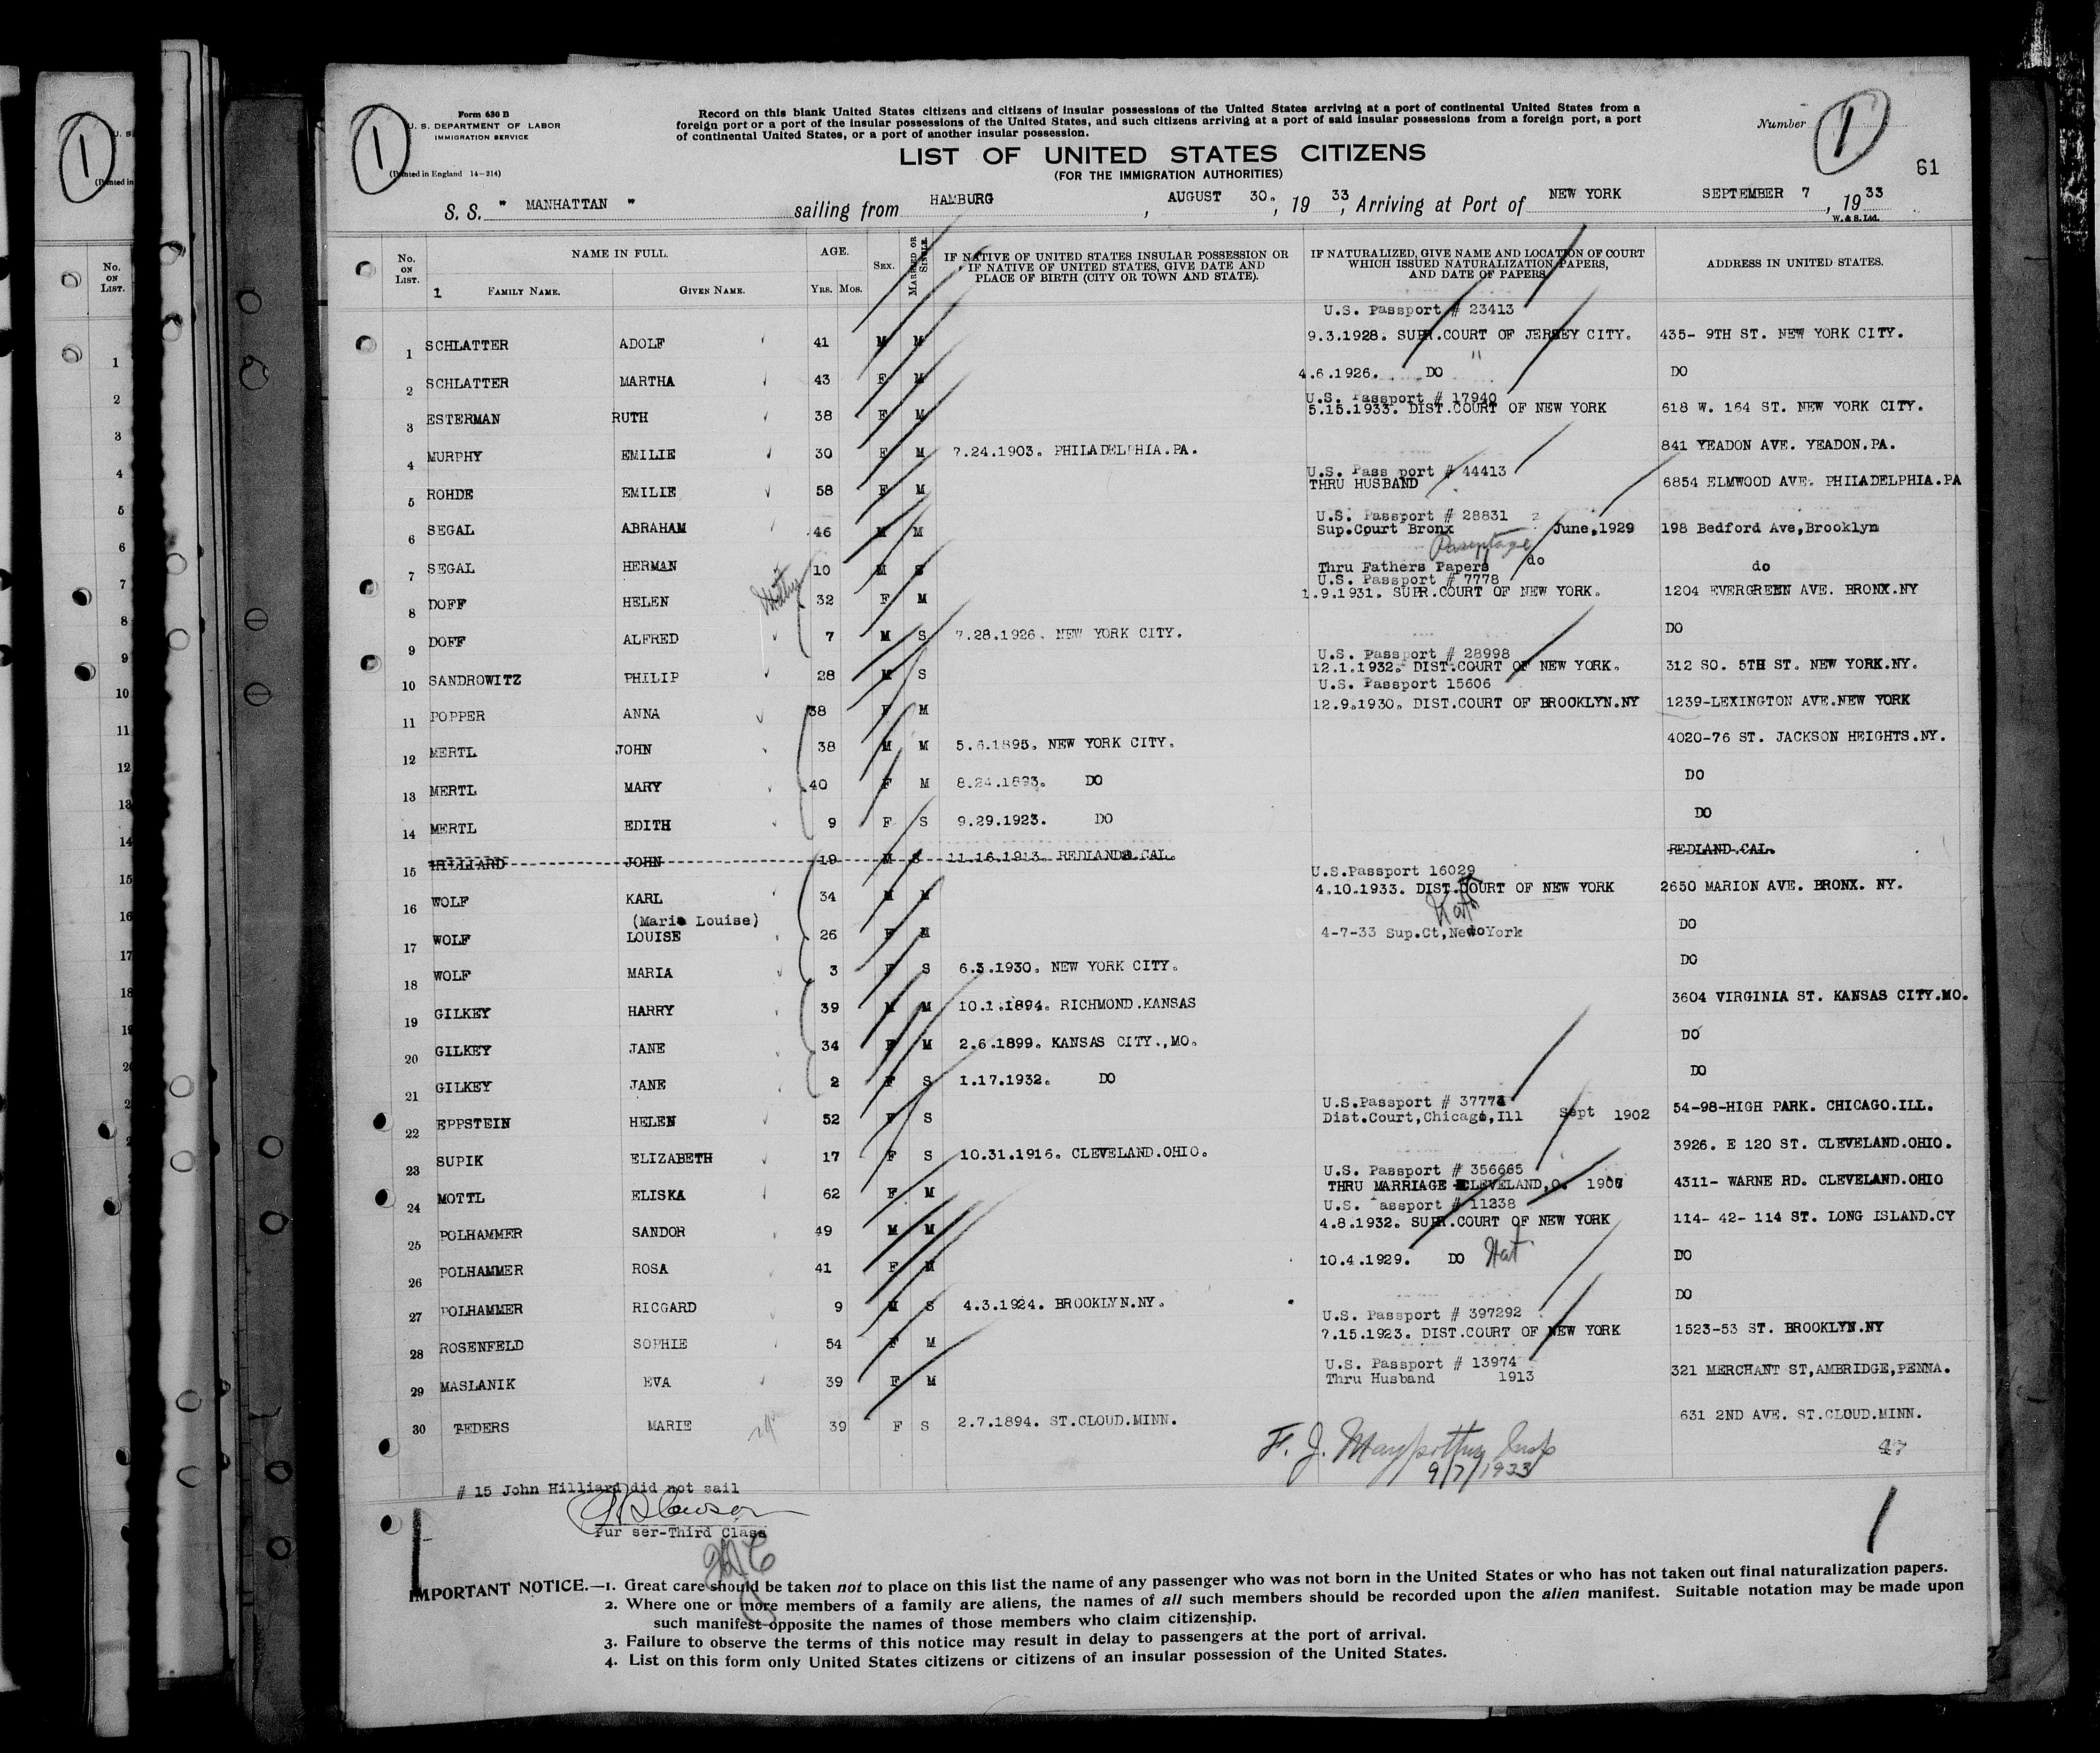 1
Form 630 B
U. S. DEPARTMENT OF LABOR
IMMIGRATION SERVICE
(Printed in England 14-214)
Record on this blank United States citizens and citizens of insular possessions of the United States arriving at a port of continental United States from a
foreign port or a port of the insular possessions of the United States, and such citizens arriving at a port of said insular possessions from a foreign port, a port
of continental United States, or a port of another insular possession.
Number 1
61
LIST OF UNITED STATES CITIZENS
(FOR THE IMMIGRATION AUTHORITIES)
S. S. " MANHATTAN " sailing from HAMBURG, AUGUST 30., 19 33, Arriving at Port of NEW YORK SEPTEMBER 7, 19 33
W. & S. Ltd.
No. ON LIST. NAME IN FULL. AGE. SEX. MARRIED OR SINGLE. IF NATIVE OF UNITED STATES INSULAR POSSESSION OR IF NATIVE OF UNITED STATES, GIVE DATE AND PLACE OF BIRTH (CITY OR TOWN AND STATE). IF NATURALIZED, GIVE NAME AND LOCATION OF COURT WHICH ISSUED NATURALIZATION PAPERS, AND DATE OF PAPERS ADDRESS IN UNITED STATES.
1 FAMILY NAME. GIVEN NAME. Yrs. Mos.
U.S. Passport # 23413
1 SCHLATTER ADOLF 41 M M 9.3.1928. SUPR.COURT OF JERSEY CITY. 435- 9TH ST. NEW YORK CITY.
"
2 SCHLATTER MARTHA 43 F M 4.6.1926. DO DO
U.S. Passport # 17940
3 ESTERMAN RUTH 38 F M 5.15.1933. DIST.COURT OF NEW YORK 618 W. 164 ST. NEW YORK CITY.
4 MURPHY EMILIE 30 F M 7.24.1903. PHILADELPHIA.PA. 841 YEADON AVE. YEADON.PA.
U.S. Pass port # 44413
5 ROHDE EMILIE 58 F M THRU HUSBAND 6854 ELMWOOD AVE. PHILADELPHIA.PA
U.S. Passport # 28831
6 SEGAL ABRAHAM 46 M M Sup.Court Bronx June,1929 198 Bedford Ave,Brooklyn
Parentage
7 SEGAL HERMAN 10 M S Thru Fathers Papers do do
U.S. Passport # 7778
8 DOFF HELEN 32 F M 1.9.1931. SUPR.COURT OF NEW YORK. 1204 EVERGREEN AVE. BRONX.NY
9 DOFF ALFRED 7 M S 7.28.1926. NEW YORK CITY. DO
U.S. Passport # 28998
10 SANDROWITZ PHILIP 28 M S 12.1.1932. DIST.COURT OF NEW YORK. 312 SO. 5TH ST. NEW YORK.NY.
U.S. Passport 15606
11 POPPER ANNA 38 F M 12.9.1930. DIST.COURT OF BROOKLYN.NY 1239-LEXINGTON AVE.NEW YORK
12 MERTL JOHN 38 M M 5.6.1895. NEW YORK CITY. 4020-76 ST. JACKSON HEIGHTS.NY.
13 MERTL MARY 40 F M 8.24.1893. DO DO
14 MERTL EDITH 9 F S 9.29.1923. DO DO
15 HILLIARD JOHN 19 M S 11.16.1913. REDLANDS.CAL. REDLAND.CAL.
U.S.Passport 16029
16 WOLF KARL 34 M M 4.10.1933. DIST.COURT OF NEW YORK 2650 MARION AVE. BRONX. NY.
(Marie Louise) Nat
17 WOLF LOUISE 26 F M 4-7-33 Sup.Ct,New York do DO
18 WOLF MARIA 3 F S 6.3.1930. NEW YORK CITY. DO
19 GILKEY HARRY 39 M M 10.1.1894. RICHMOND.KANSAS 3604 VIRGINIA ST. KANSAS CITY.MO.
20 GILKEY JANE 34 F M 2.6.1899. KANSAS CITY.,MO. DO
21 GILKEY JANE 2 F S 1.17.1932. DO DO
U.S.Passport # 37774
22 EPPSTEIN HELEN 52 F S Dist.Court,Chicago,Ill Sept 1902 54-98-HIGH PARK. CHICAGO.ILL.
23 SUPIK ELIZABETH 17 F S 10.31.1916. CLEVELAND.OHIO. 3926. E 120 ST. CLEVELAND.OHIO.
U.S. Passport # 356665
24 MOTTL ELISKA 62 F M THRU MARRIAGE CLEVELAND,O. 4311- WARNE RD. CLEVELAND.OHIO
U.S. assport # 11238
25 POLHAMMER SANDOR 49 M M 4.8.1932. SUPR.COURT OF NEW YORK 114- 42- 114 ST. LONG ISLAND.CY
26 POLHAMMER ROSA 41 F M 10.4.1929. DO Nat DO
27 POLHAMMER RICGARD 9 M S 4.3.1924. BROOKLYN.NY. DO
U.S. Passport # 397292
28 ROSENFELD SOPHIE 54 F M 7.15.1923. DIST.COURT OF NEW YORK 1523-53 ST. BROOKLYN.NY
U.S. Passport # 13974
29 MASLANIK EVA 39 F M Thru Husband 1913 321 MERCHANT ST,AMBRIDGE,PENNA.
30 TEDERS MARIE 39 F S 2.7.1894. ST.CLOUD.MINN. 631 2ND AVE. ST.CLOUD.MINN.
F. J. 9/7/1933
47
# 15 John Hilliard did not sail
Pur ser-Third Class
IMPORTANT NOTICE.—1. Great care should be taken not to place on this list the name of any passenger who was not born in the United States or who has not taken out final naturalization papers.
2. Where one or more members of a family are aliens, the names of all such members should be recorded upon the alien manifest. Suitable notation may be made upon
such manifest opposite the names of those members who claim citizenship.
3. Failure to observe the terms of this notice may result in delay to passengers at the port of arrival.
4. List on this form only United States citizens or citizens of an insular possession of the United States.